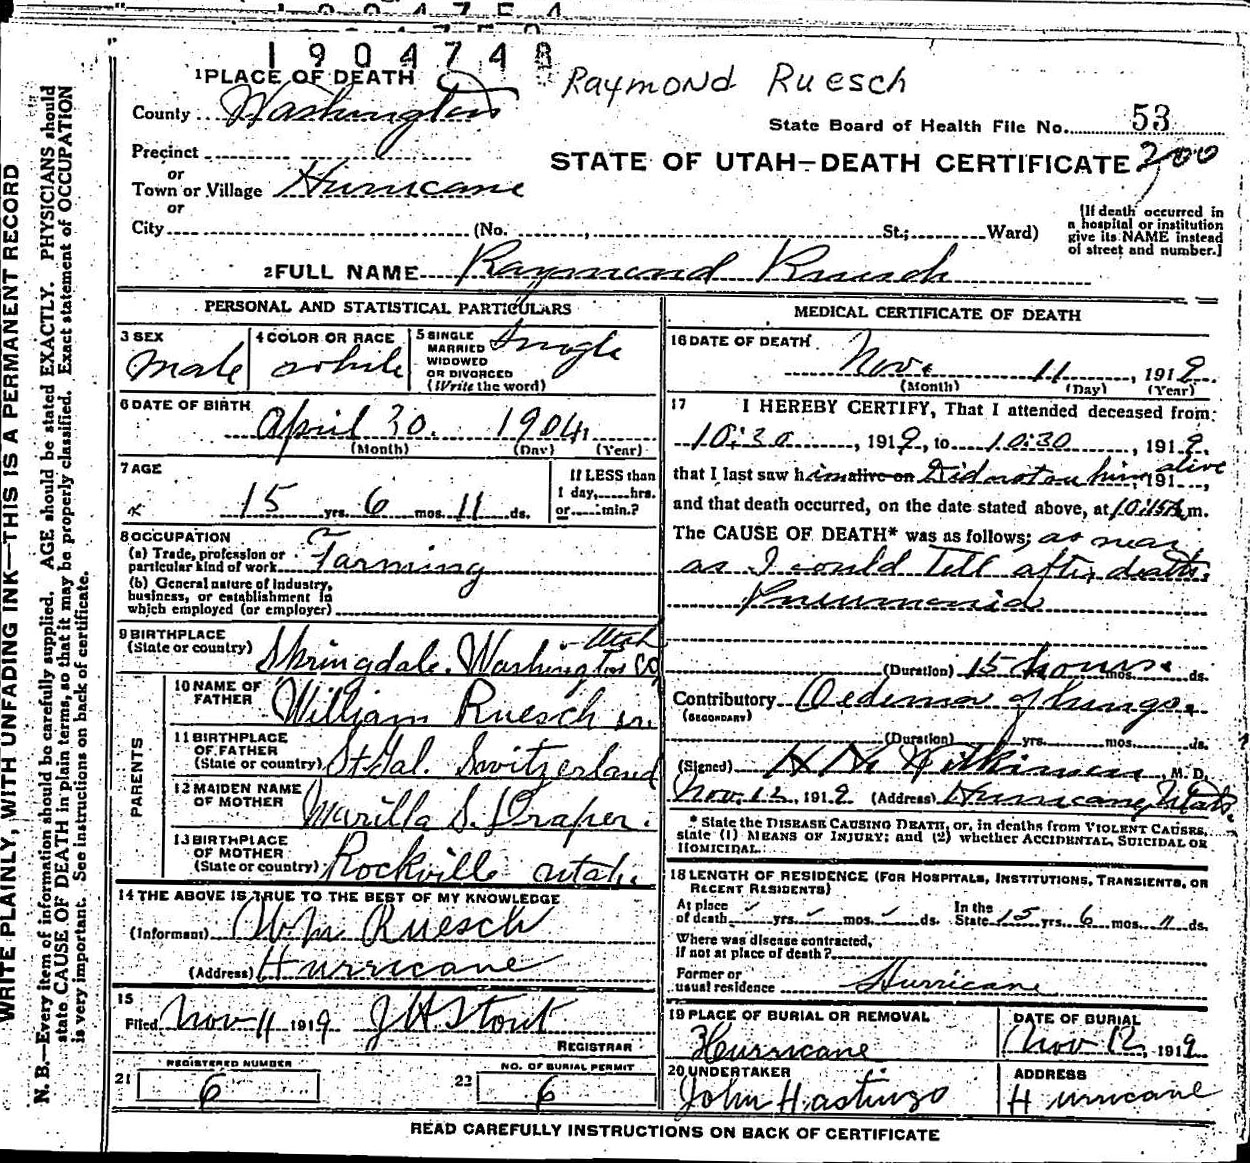 1904748
Raymond Ruesch
1 PLACE OF DEATH
County Washington
State Board of Health File No. 53
Precinct
STATE OF UTAH—DEATH CERTIFICATE 200
or
Town or Village Hurricane
or
City (No. , St.; Ward)
[If death occurred in
a hospital or institution
give its NAME instead
of street and number.]
2 FULL NAME Raymond Ruesch
PERSONAL AND STATISTICAL PARTICULARS
3 SEX
Male
4 COLOR OR RACE
white
5 SINGLE
MARRIED
WIDOWED
OR DIVORCED
(Write the word)
Single
6 DATE OF BIRTH
April 30. 1904
(Month) (Day) (Year)
7 AGE
15 yrs. 6 mos. 11 ds.
If LESS than
1 day, hrs.
or min.?
8 OCCUPATION
(a) Trade, profession or
particular kind of work Farming
(b) General nature of industry,
business, or establishment in
which employed (or employer)
9 BIRTHPLACE
(State or country) Springdale, Washington Co Utah
PARENTS
10 NAME OF
FATHER William Ruesch sr.
11 BIRTHPLACE
OF FATHER
(State or country) St Gal. Switzerland
12 MAIDEN NAME
OF MOTHER Marilla S. Draper.
13 BIRTHPLACE
OF MOTHER
(State or country) Rockville utah.
14 THE ABOVE IS TRUE TO THE BEST OF MY KNOWLEDGE
(Informant) Wm Ruesch
(Address) Hurricane
15
Filed Nov 11 1919 J H Stout
REGISTRAR
REGISTERED NUMBER
21 6
NO. OF BURIAL PERMIT
22 6
MEDICAL CERTIFICATE OF DEATH
16 DATE OF DEATH
Nov. 11, 1919
(Month) (Day) (Year)
17 I HEREBY CERTIFY, That I attended deceased from
10:30, 1919, to 10:30, 1919.
that I last saw him alive on Did not see him alive 191 ,
and that death occurred, on the date stated above, at 10:15 A m.
The CAUSE OF DEATH* was as follows; as near
as I could Tell after death.
Pneumonia
(Duration) 15 hours. mos. ds.
Contributory Oedema of lungs.
(SECONDARY)
(Duration) yrs. mos. ds.
(Signed) Wilkinson, M. D.
Nov. 12, 1919 (Address) Hurricane, Utah.
* State the DISEASE CAUSING DEATH, or, in deaths from VIOLENT CAUSES,
state (1) MEANS OF INJURY; and (2) whether ACCIDENTAL, SUICIDAL OR
HOMICIDAL.
18 LENGTH OF RESIDENCE (FOR HOSPITALS, INSTITUTIONS, TRANSIENTS, OR
RECENT RESIDENTS)
At place
of death yrs. mos. ds.
In the
State 15 yrs. 6 mos. 11 ds.
Where was disease contracted,
if not at place of death?
Former or
usual residence Hurricane
19 PLACE OF BURIAL OR REMOVAL
Hurricane
DATE OF BURIAL
Nov 12, 1919
20 UNDERTAKER
John Hastings
ADDRESS
Hurricane
READ CAREFULLY INSTRUCTIONS ON BACK OF CERTIFICATE
WRITE PLAINLY, WITH UNFADING INK—THIS IS A PERMANENT RECORD
N. B.—Every item of information should be carefully supplied. AGE should be stated EXACTLY. PHYSICIANS should
state CAUSE OF DEATH in plain terms, so that it may be properly classified. Exact statement of OCCUPATION
is very important. See instructions on back of certificate.